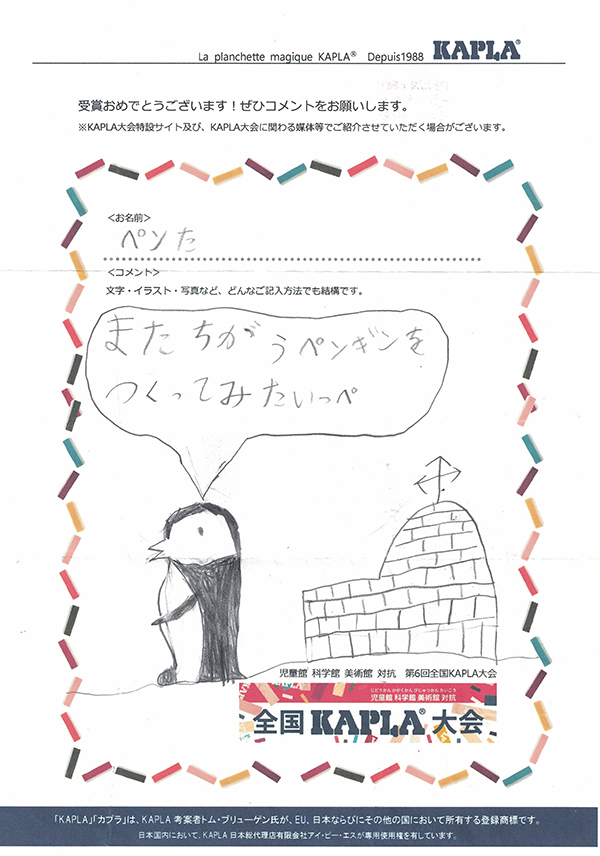 La planchette magique KAPLA® Depuis1988 KAPLA®
受賞おめでとうございます！ぜひコメントをお願いします。
※KAPLA大会特設サイト及び、KAPLA大会に関わる媒体等でご紹介させていただく場合がございます。
<お名前>
ペンた
<コメント>
文字・イラスト・写真など、どんなご記入方法でも結構です。
またちがうペンギンを
つくってみたいっペ
児童館 科学館 美術館 対抗 第6回全国KAPLA大会
じどうかん かがくかん びじゅつかん たいこう
児童館 科学館 美術館 対抗
全国 KAPLA® 大会
「KAPLA」「カプラ」は、KAPLA 考案者トム・ブリューゲン氏が、EU、日本ならびにその他の国において所有する登録商標です。
日本国内において、KAPLA 日本総代理店有限会社アイ・ピー・エスが専用使用権を有しています。